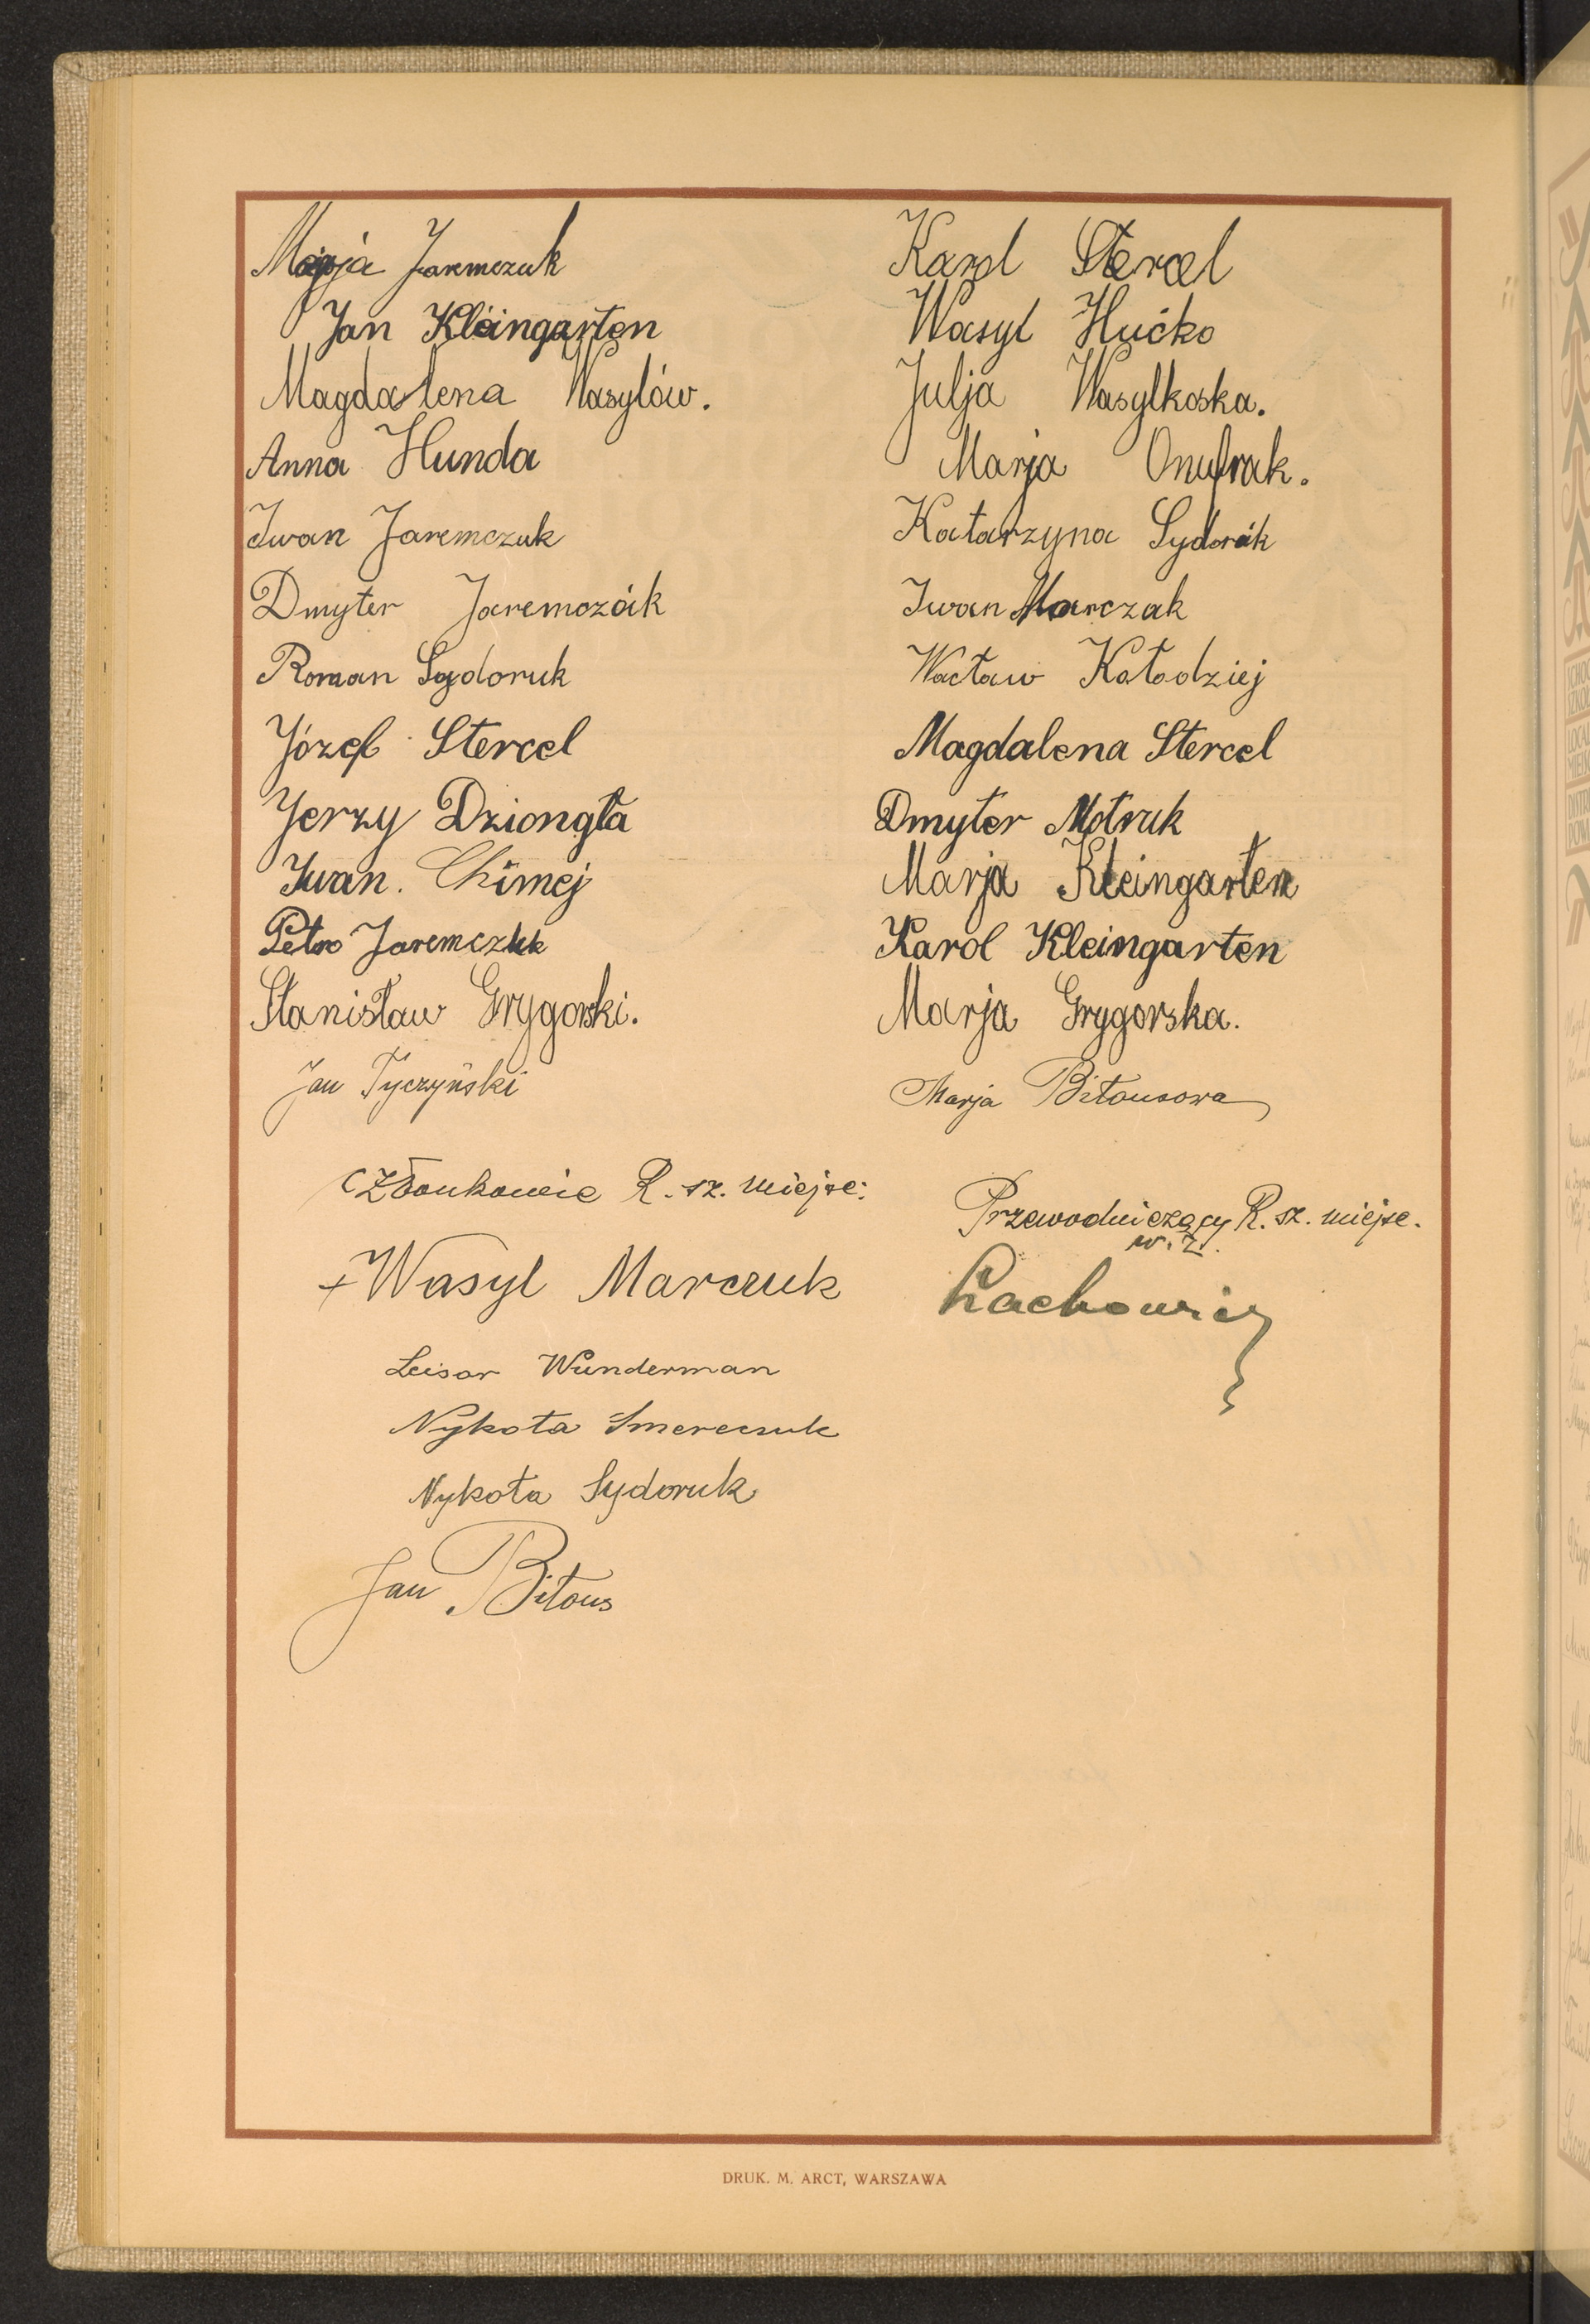 Marja Jaremczuk
Jan Kleingarten
Magdalena Wasylów.
Anna Hunda
Iwan Jaremczuk
Dmyter Jaremczók
Roman Sydoruk
Józef Stercel
Jerzy Dziongła
Iwan. Chimej
Petro Jaremczuk
Stanisław Grygorski.
Jan Tyczyński
Karol Stercel
Wasyl Hućko
Julja Wasylkoska.
Marja Onufrak.
Katarzyna Sydorák
Iwan Marczak
Wacław Kołodziej
Magdalena Stercel
Dmyter Motruk
Marja Kleingarten
Karol Kleingarten
Marja Grygorska.
Marja Biłousowa
Członkowie R. sz. miejsc:
Wasyl Marczuk
Leisor Wunderman
Nykoła Smereczuk
Nykoła Sydoruk
Jan Biłous
Przewodniczący R. sz. miejsc.
w. z.
Lachowicz
DRUK. M. ARCT, WARSZAWA